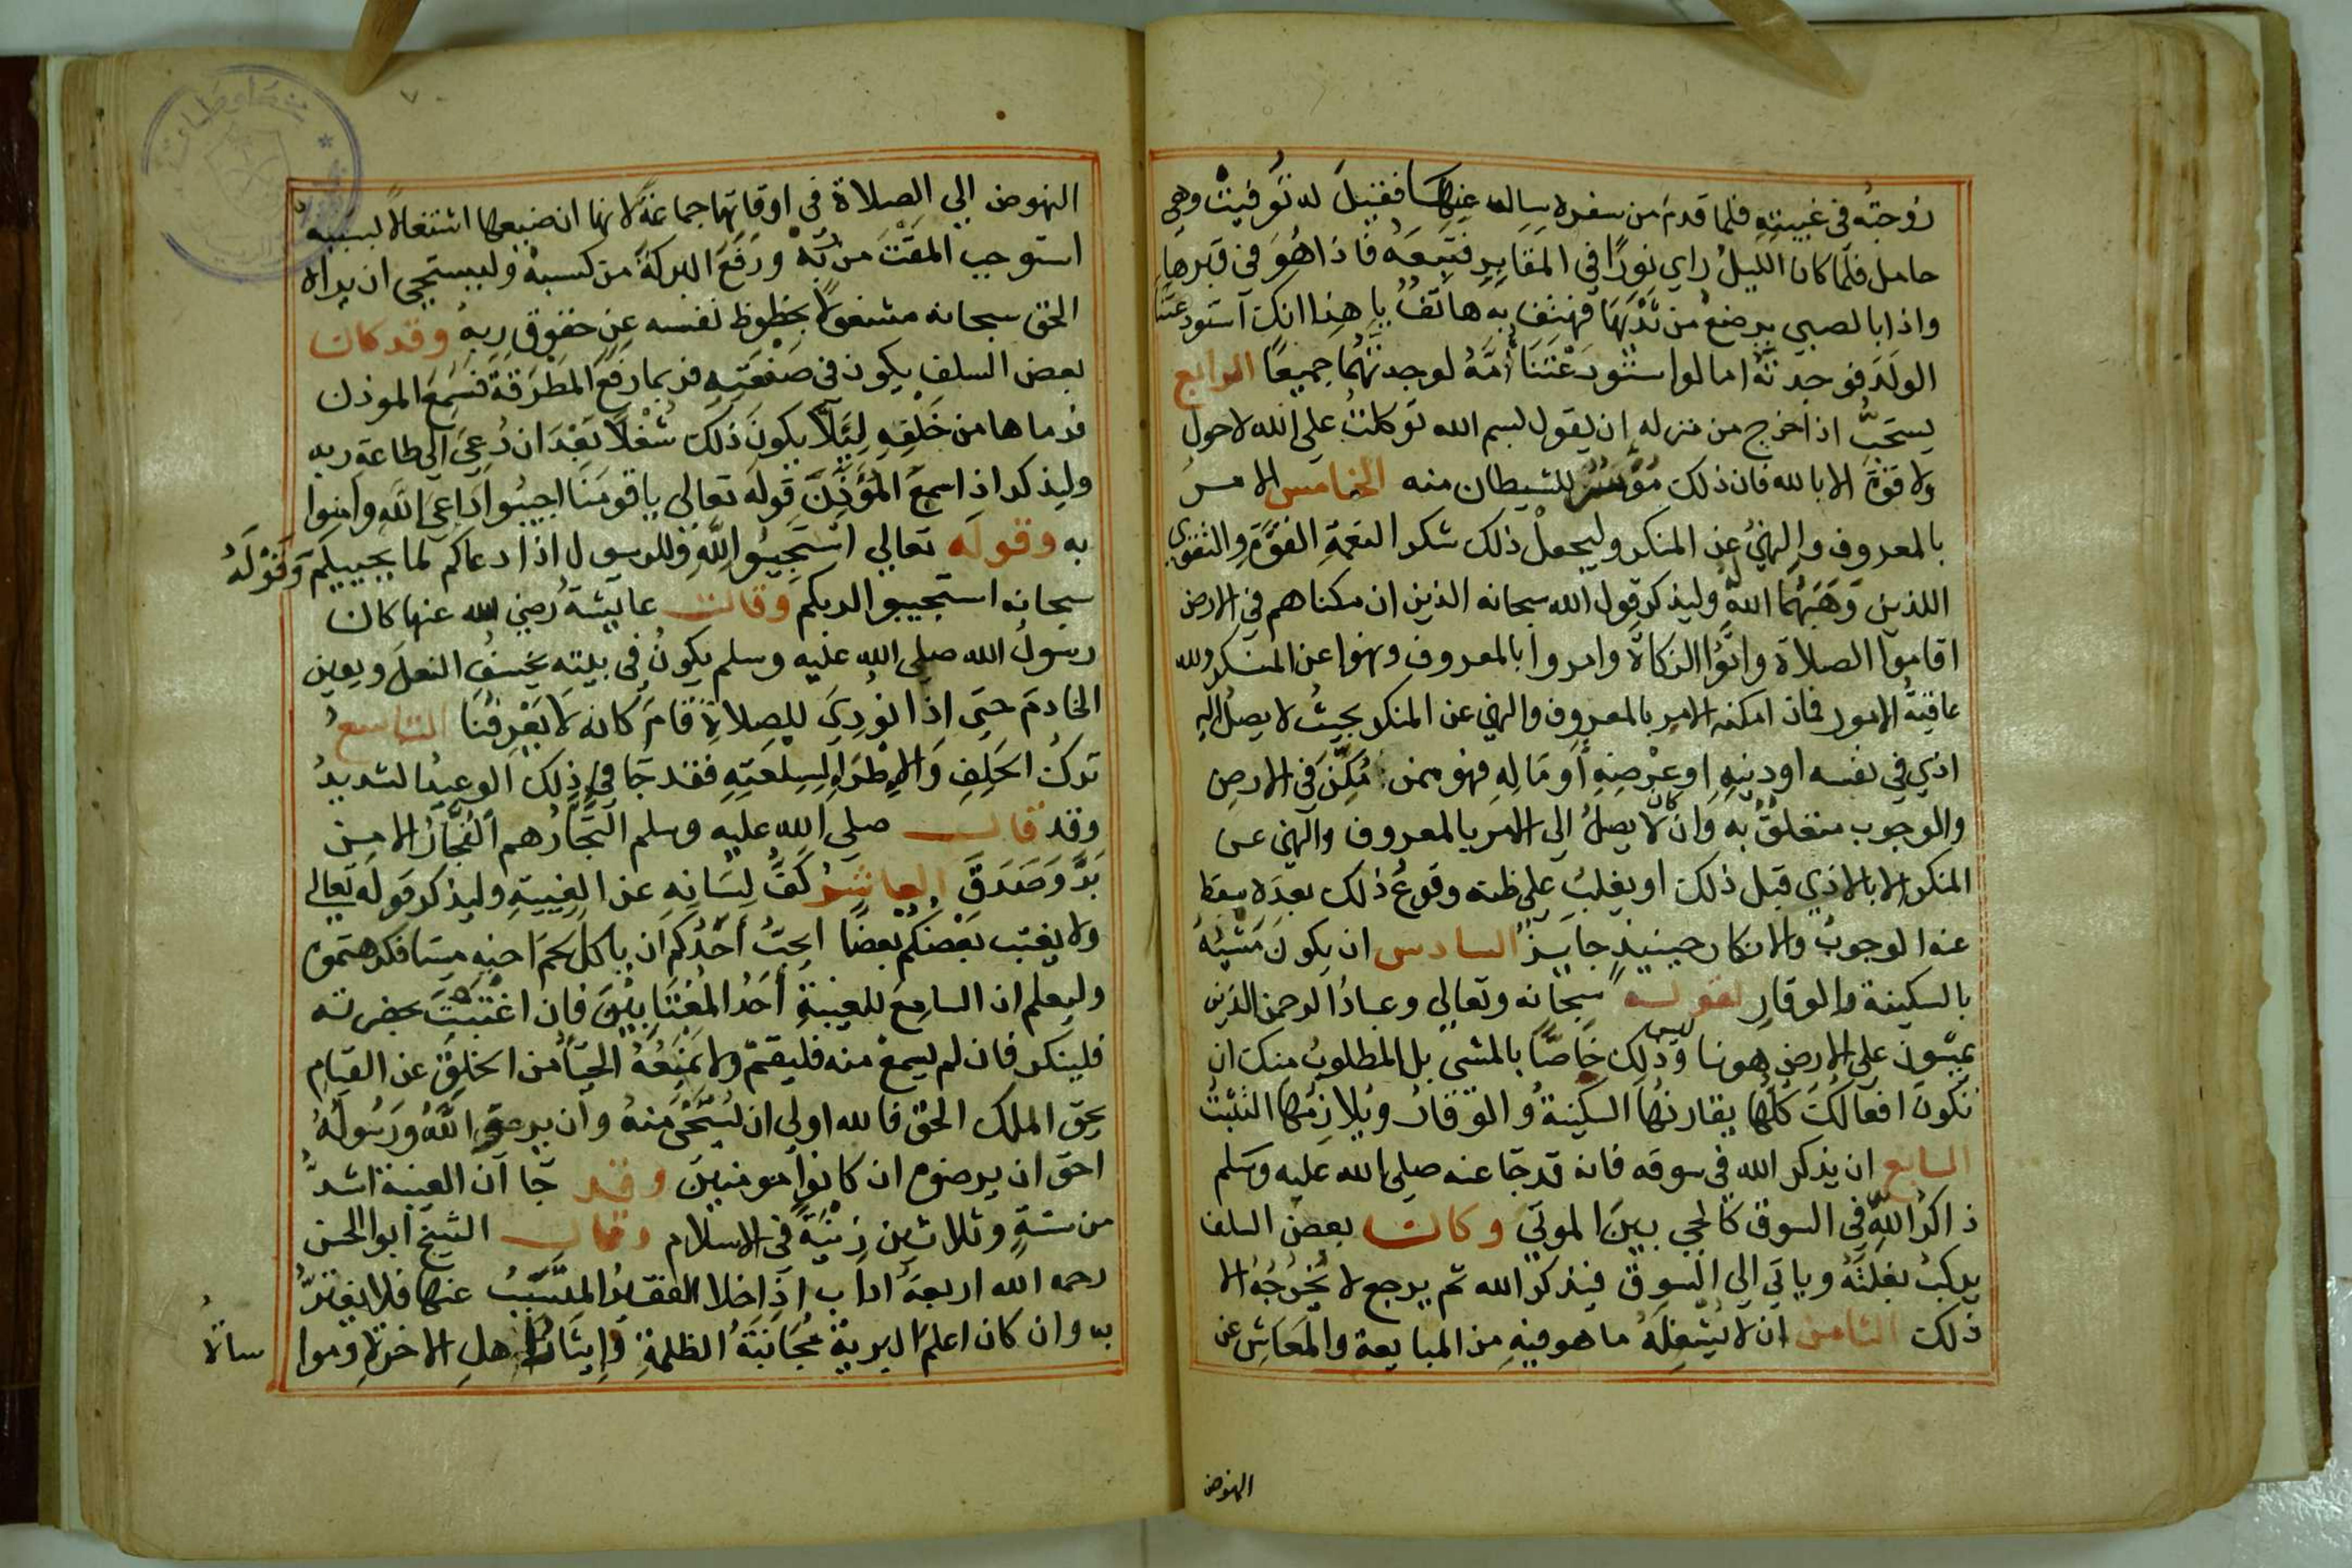 زوجته في غيبيته فلما قدم من سفره سال عنها فقيل له توفيت وهي
حامل فلما كان الليل راي نورا في المقابر فتبعه فاذا هو في قبرها
واذا بالصبي يرضع من ثديها فهتف به هاتف يا هذا انك استودعتنا
الولد فوجدته اما لو استودعتنا امه لوجدتهما جميعا الرابع
يستحب اذا خرج من منزله ان يقول بسم الله توكلت على الله لاحول
ولا قوة الا بالله فان ذلك للشيطان منه الخامس الامر
بالمعروف والنهي عن المنكر وليجعل ذلك شكر النعمة القوة والتقوي
اللذين وهبهما الله وليذكر قول الله سبحانه الذين ان مكناهم في الارض
اقاموا الصلاة واتوا الزكاة وامروا بالمعروف ونهوا عن المنكر ولله
عاقبة الامور فان امكنه الامر بالمعروف والنهي عن المنكر بحيث لا يصل اليه
اذي في نفسه او دينه او عرضه أو ماله فهو ممن مكن في الارض
والوجوب متعلق به وان كان لا يصل الى الامر بالمعروف والنهي عن
المنكر الا بالاذي قبل ذلك او يغلب على ظنه وقوع ذلك بعده سقط
عنه الوجوب والانكار حينيذ جايز السادس ان يكون مشيه
بالسكينة والوقار لقوله سبحانه وتعالي وعباد الرحمن الذين
يمشون على الارض هونا وليس ذلك خاصا بالمشي بل المطلوب منك ان
تكون افعالك كلها يقارنها السكينة والوقار ويلازمها التثبت
السابع ان يذكر الله في سوقه فانه قد جا عنه صلى الله عليه وسلم
ذاكر الله في السوق كالحي بين الموتي وكان بعض السلف
يركب بغلته وياتي الي السوق فيذكر الله ثم يرجع لا يخرجه الا
ذلك الثامن ان لا يشغله ما هو فيه من المبايعة والمعاش عن
النهوض
النهوض الي الصلاة في اوقاتها جماعة لانها ان ضيعها اشتغالا بسببه
استوجب المقت من ربه ورفع البركة من كسبه وليستحي ان يراه
الحق سبحانه مشغولا بحظوظ نفسه عن حقوق ربه وقد كان
بعض السلف يكون في صنعته فربما رفع المطرقة فسمع الموذن
فرماها من خلفه ليلا يكون ذلك شغلا بعد ان دعي الي طاعة ربه
وليذكر اذا سمع المؤذن قوله تعالي يا قومنا اجيبوا داعي الله وامنوا
به وقوله تعالي استجيبوا لله وللرسول اذا دعاكم لما يحييكم وقوله
سبحانه استجيبوا لربكم وقالت عايشة رضي الله عنها كان
رسول الله صلى الله عليه وسلم يكون في بيته يخصف النعل ويعين
الخادم حتي اذا نودي للصلاة قام كانه لا يعرفنا التاسع
ترك الحلف والاطراء لسلعته فقد جا في ذلك الوعيد الشديد
وقد قال صلى الله عليه وسلم التجار هم الفجار الا من
بر وصدق العاشر كف لسانه عن الغيبة وليذكر قوله تعالى
ولا يغتب بعضكم بعضا ايحب أحدكم ان ياكل لحم اخيه ميتا فكرهتموه
وليعلم ان السامع للغيبة أحد المغتابين فان اغتبت بحضرته
فلينكر فان لم يسمع منه فليقم ولا يمنعه الحيا من الخلق عن القيام
بحق الملك الحق فالله اولي ان يستحي منه وان يرضي الله ورسوله
احق ان يرضوه ان كانوا مومنين وقد جا ان الغيبة اشد
من ستة وثلاثين زنية في الاسلام وقال الشيخ ابوالحسن
رحمه الله اربعة اداب اذا خلا الفقير المتسبب عنها فلا يغتر
به وان كان اعلم البرية مجانبة الظلمة وإيثار اهل الاخرة وموا
ساة